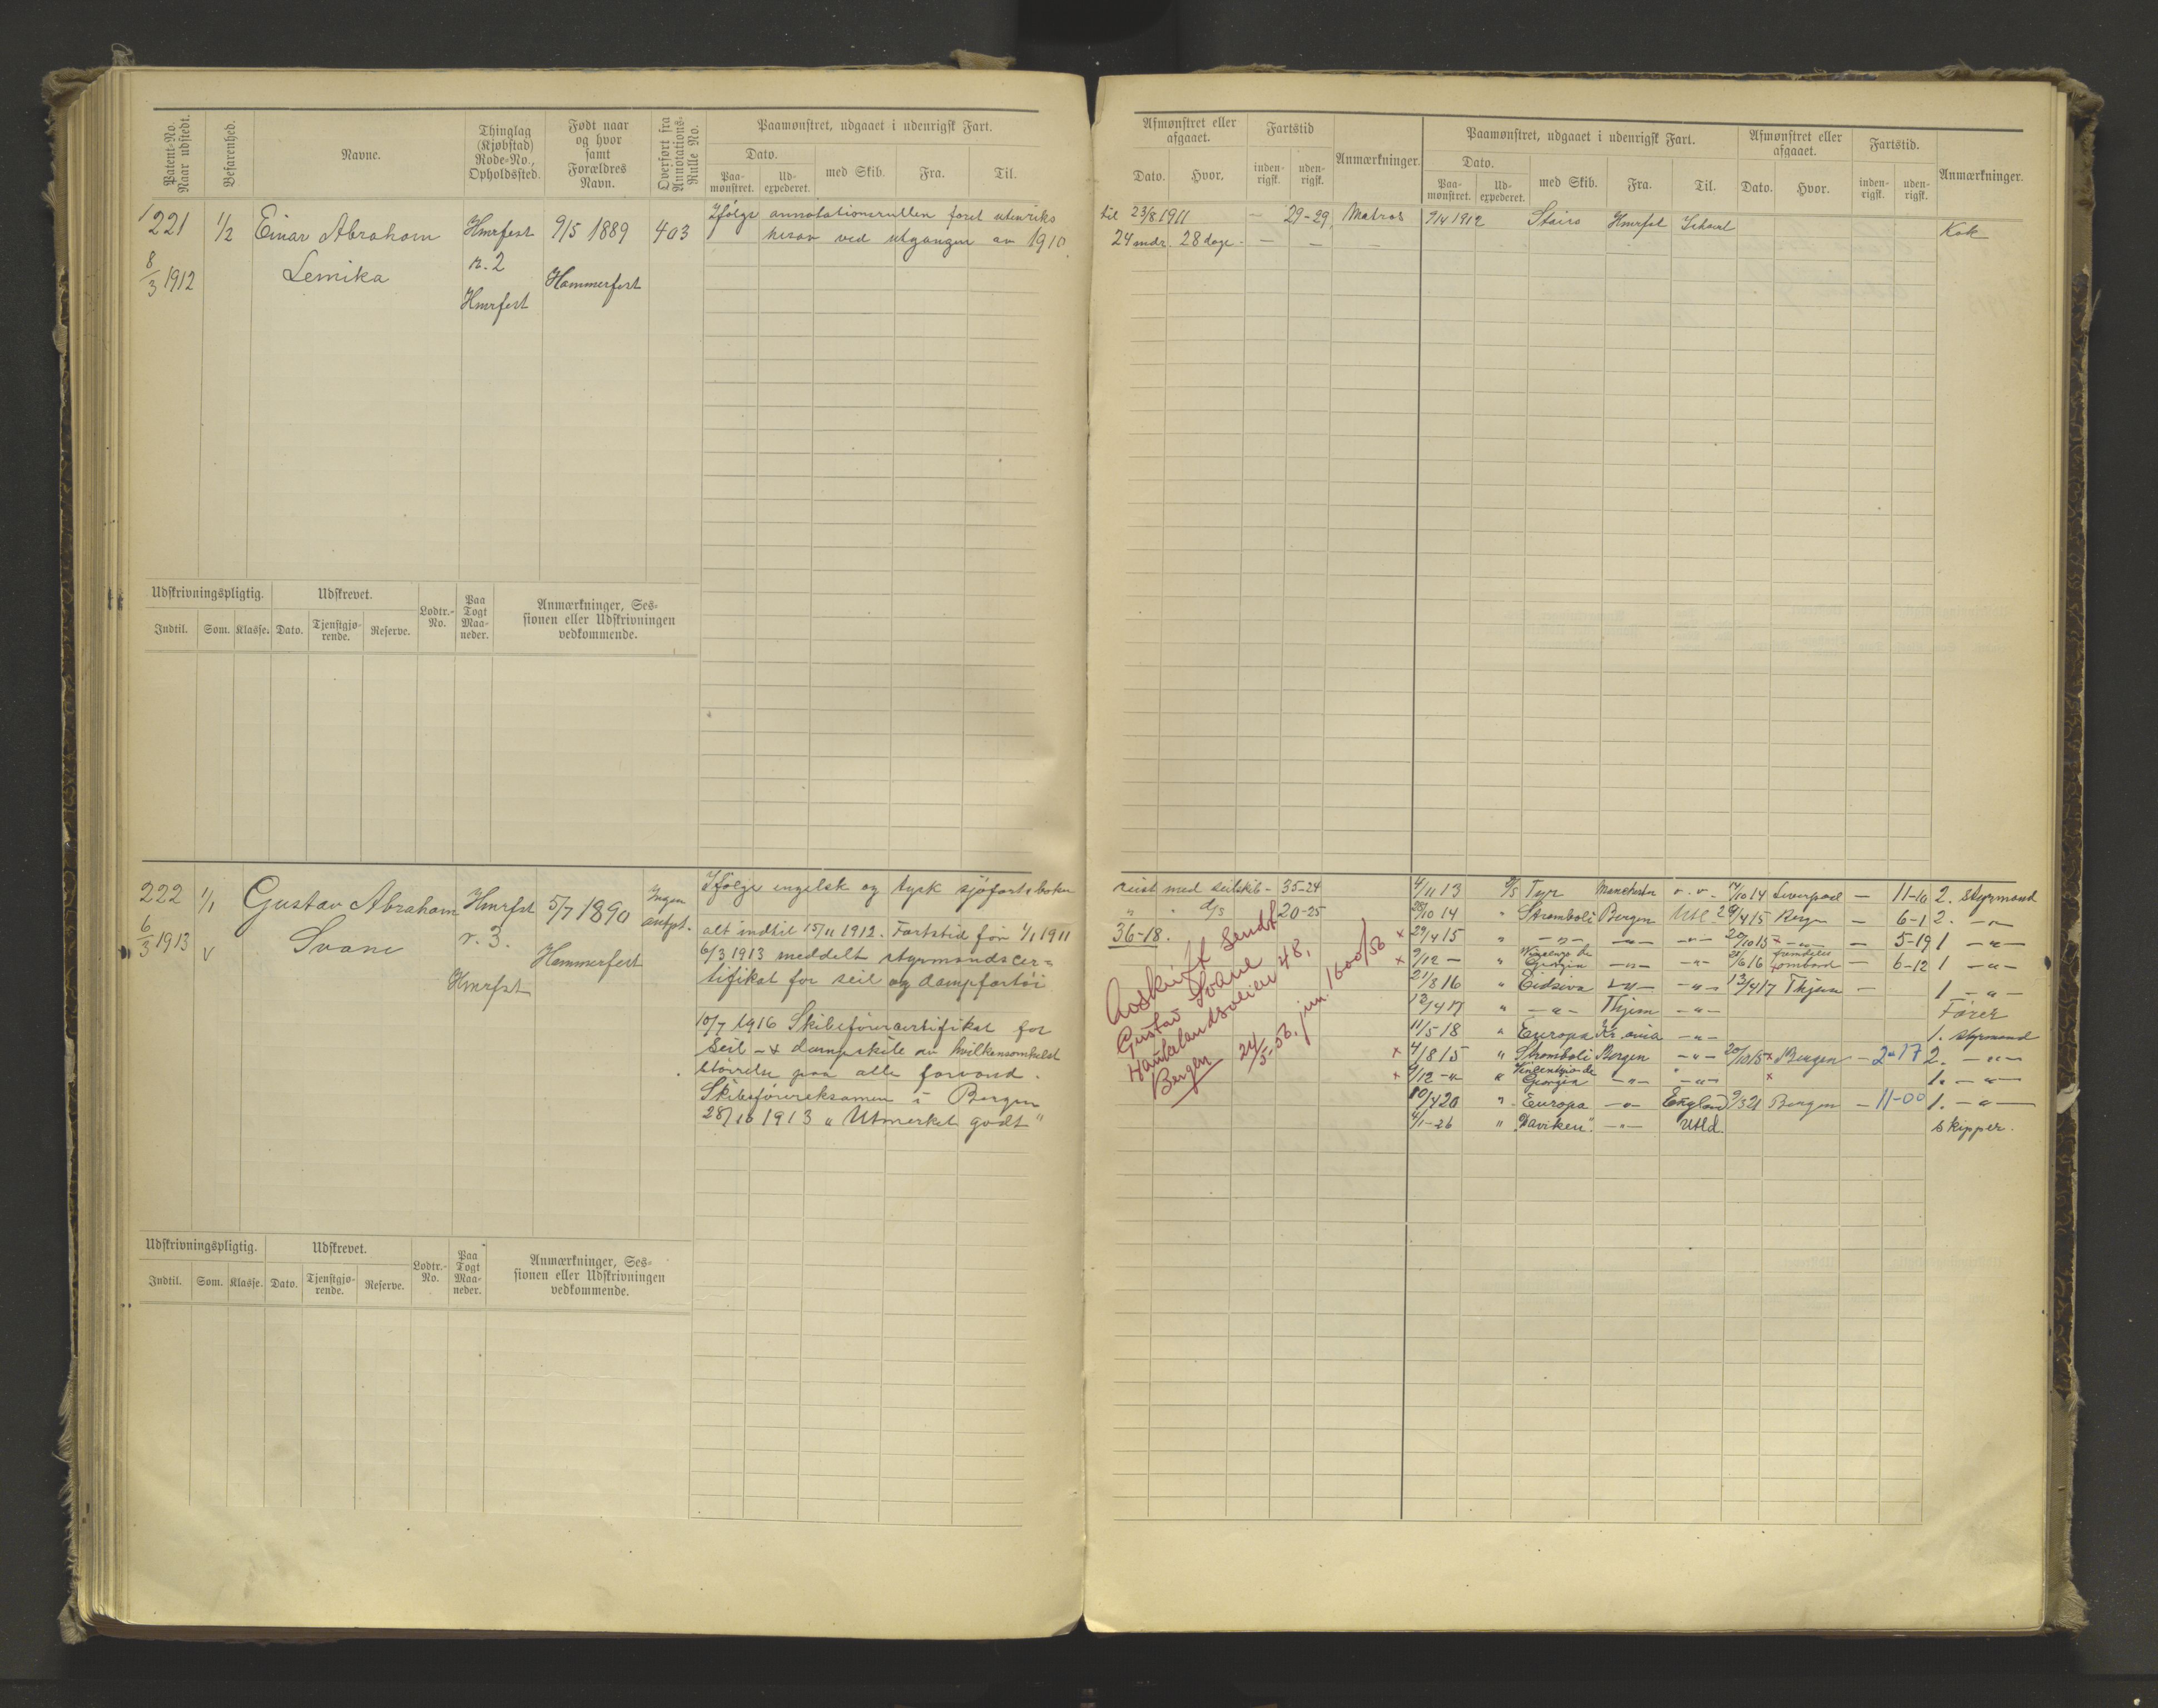 Patent-No. Naar udstedt.
Befarenhed.
Navne.
Thinglag (Kjøbstad) Rode-No., Opholdssted.
Født naar og hvor samt Forældres Navn.
Overført fra Annotations-Rulle No.
Paamønstret, udgaaet i udenrigsk Fart.
Dato.
Paa-mønstret.
Ud-expederet.
med Skib.
Fra.
Til.
221 1/2 Einar Abraham Hmrfest 9/5 1889 403
8/3 1912 Lemika r. 2 Hammerfest
Hmrfest
Ifølge annotationsrullen faret utenriks
herav ved utgangen av 1910
Udskrivningspligtig.
Udskrevet.
Lodtr.-No.
Paa Togt Maa-neder.
Anmærkninger, Ses-sionen eller Udskrivningen vedkommende.
Indtil. Som. Klasse. Dato. Tjenstgjø-rende. Reserve.
222 1/1 Gustav Abraham Hmrfst 5/7 1890 Ingen
6/3 1913 v Svane r. 3. Hammerfest
Hmrfst
Ifølge engelsk og tysk sjøfartsboker
alt indtil 15/11 1912. Fartstid før 1/1 1911
6/3 1913 meddelt styrmandscer=
tifikat for seil og dampfartøi
10/7 1916 Skibsførercertifikat for
Seil - & dampskibe av hvilkensomhelst
størrelse paa alle farvand.
Skibsførereksamen i Bergen
28/10 1913 "Utmerket godt"
Udskrivningspligtig.
Udskrevet.
Lodtr.-No.
Paa Togt Maa-neder.
Anmærkninger, Ses-sionen eller Udskrivningen vedkommende.
Indtil. Som. Klasse. Dato. Tjenstgjø-rende. Reserve.
Afmønstret eller afgaaet.
Fartstid
Anmærkninger.
Paamønstret, udgaaet i udenrigsk Fart.
Afmønstret eller afgaaet.
Fartstid.
Anmærkninger.
Dato. Hvor. inden-rigsk. uden-rigsk.
Dato. Paa-mønstret. Ud-expederet. med Skib. Fra. Til. Dato. Hvor. inden-rigsk. uden-rigsk.
til 23/8 1911 - 29-29, Matros 9/4 1912 Staira Hmrfst Kok
24 mdr. 28 dage. - - - -
reist med seilskib - 35-24 4/11 13 D/S Tyr Manchester v. v. 17/10 14 Liverpool - 11-10 2. styrmand
" " d/s 20-25 28/10 14 " Stromboli Bergen Utl. 29/4 15 Bergen - 6-1 2. -"-
36-18. x 29/4 15 " -"- -"- -"- 20/10 15 x -"- - 5-19 1 -"-
x 9/12 - " Georgia -"- -"- 21/6 16 fremdeles ombord - 6-12 1 -"-
21/8 16 " Eidsiva -"- -"- 13/4 17 Thjem - 1 -"-
13/4 17 " -"- Thjem -"- Fører
11/5 18 " Europa Kr.ania -"- 1. styrmand
x 4/8 15 " Stromboli Bergen -"- 20/10 15 x Bergen - 2-17 2. -"-
x 9/12 -"- " Georgia -"- -"- x 1. -"-
80/4 20 " Europa -"- England 9/3 21 Bergen - 11-00 1. -"-
4/1-26 " "Daviken" -"- Utld. Skipper.
Avskrift sendt
Gustav Svane
Haukelandsveien 48,
Bergen 24/5-56. jnr. 1600/56